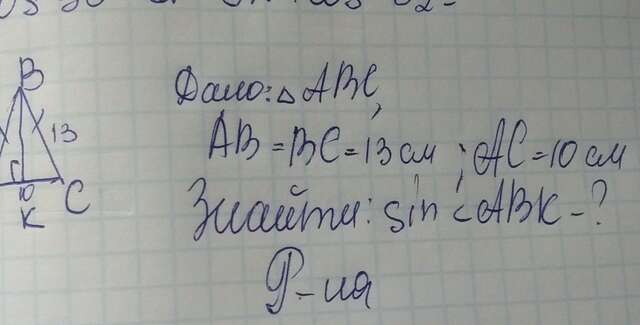 B
Дано: △ABC,
13
AB = BC = 13 см ; AC = 10 см
10
C
K
Знайти: sin <ABK - ?
Р-ня